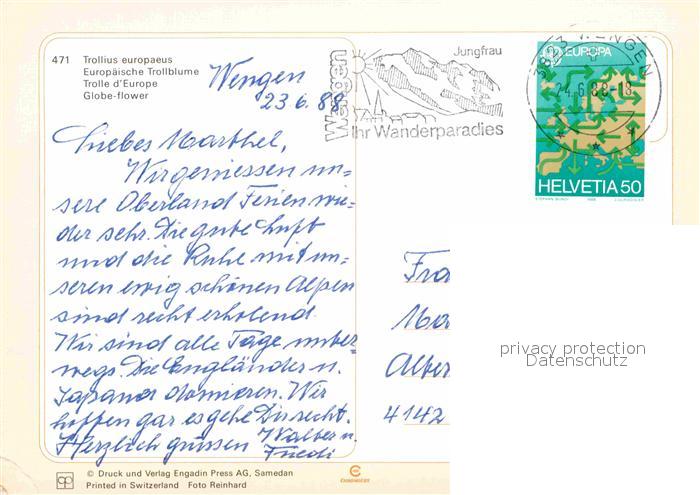 471 Trollius europaeus
Europäische Trollblume
Trolle d'Europe
Globe-flower
Wengen
23.6.88
Liebes Marthel,
Wir geniessen un-
sere Oberland Ferien wie-
der sehr. Die gute Luft
und die Ruhe mit un-
seren ewig schönen Alpen
sind recht erholend.
Wir sind alle Tage unter-
wegs. Die Engländer u.
Japaner domieren. Wir
hoffen gar es gehe Dir recht.
Herzlich grüssen Walter u.
Friedi
© Druck und Verlag Engadin Press AG, Samedan
Printed in Switzerland Foto Reinhard
Wengen
Jungfrau
Ihr Wanderparadies
3823 WENGEN
24.6.88-18
EUROPA
HELVETIA 50
1988
Fra
Mar
Alber
4142
privacy protection
Datenschutz